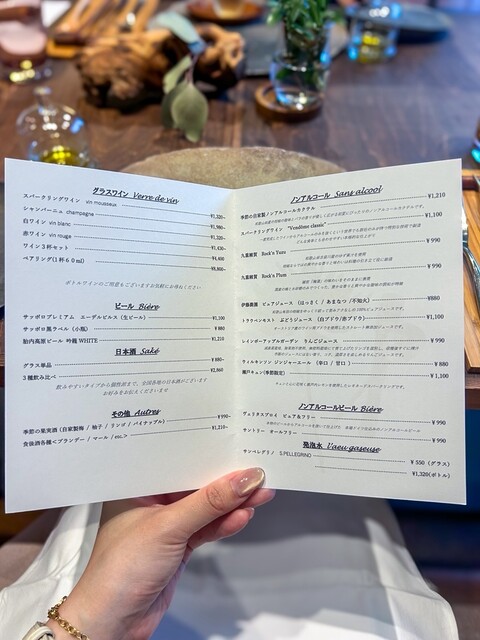 グラスワイン Verre de vin
スパークリングワイン vin mousseux ¥1,320~
シャンパーニュ champagne ¥1,980~
白ワイン vin blanc ¥1,320~
赤ワイン vin rouge ¥1,320~
ワイン3杯セット ¥4,400
ペアリング(1杯60ml) ¥8,800~
ボトルワインのご用意もございますお気軽にお尋ねください
ビール Bière
サッポロプレミアム エーデルピルス(生ビール) ¥1,100
サッポロ黒ラベル(小瓶) ¥880
胎内高原ビール 吟籠 WHITE ¥1,210
日本酒 Saké
グラス単品 ¥880~
3種飲み比べ ¥2,860
飲みやすいタイプから個性派まで、全国各地の日本酒がございます
お好みをお伝えくださいませ
その他 Autres
季節の果実酒(自家製梅 / 柚子 / リンゴ / パイナップル) ¥990~
食後酒各種<ブランデー / マール / etc.> ¥1,210~
ノンアルコール Sans alcool
季節の自家製ノンアルコールカクテル ¥1,210
スパークリングワイン "Vendôme classic" ¥1,100
九重雑賀 Rock'n Yuzu ¥990
九重雑賀 Rock'n Plum ¥990
伊藤農園 ピュアジュース (はっさく / あまなつ / 不知火) ¥880
トラウベンモスト ぶどうジュース (白ブドウ/赤ブドウ) ¥1,100
レインボーアップルガーデン りんごジュース ¥990
ウィルキンソン ジンジャーエール (辛口 / 甘口) ¥880
瀬戸キュン(季節限定) ¥1,100
ノンアルコールビール Bière
ヴェリタスブロイ ピュア&フリー ¥990
サントリー オールフリー ¥990
発泡水 L'aeu-gaseuse
サンペレグリノ S.PELLEGRINO ¥550(グラス)
¥1,320(ボトル)